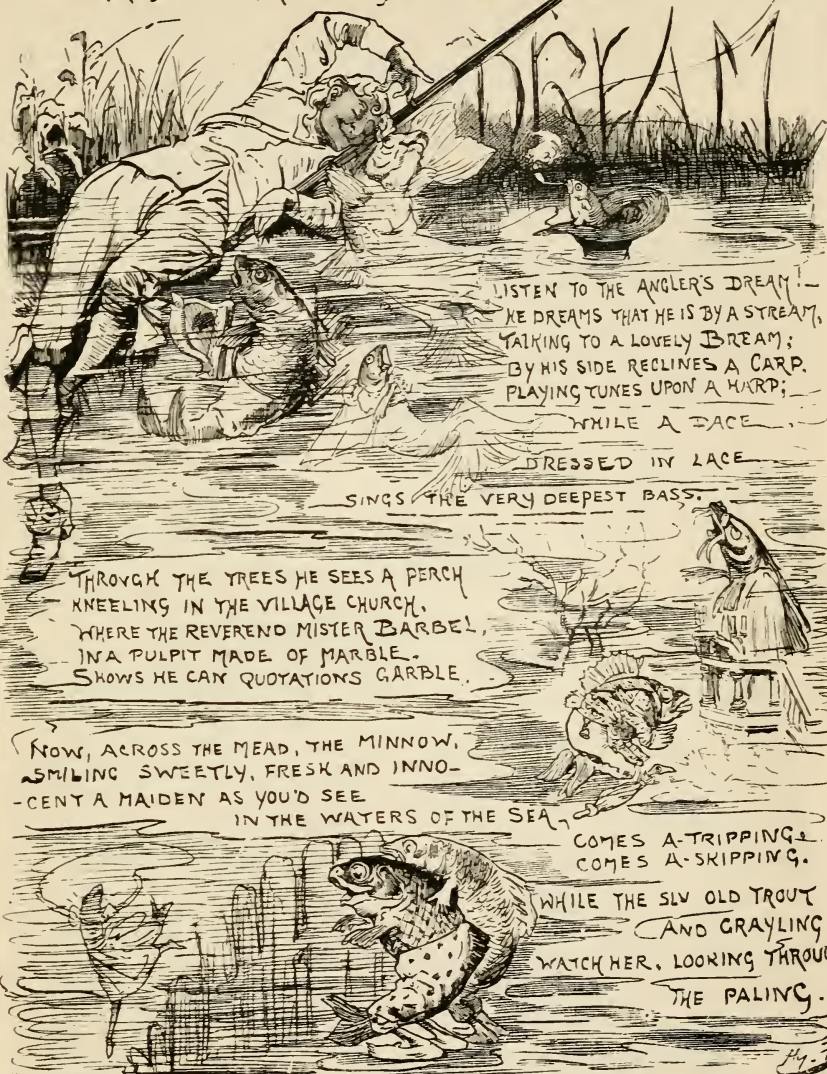 DREAM
LISTEN TO THE ANGLER'S DREAM!—
HE DREAMS THAT HE IS BY A STREAM,
TALKING TO A LOVELY BREAM;
BY HIS SIDE RECLINES A CARP.
PLAYING TUNES UPON A HARP;
WHILE A DACE
DRESSED IN LACE
SINGS THE VERY DEEPEST BASS.
THROUGH THE TREES HE SEES A PERCH
KNEELING IN THE VILLAGE CHURCH,
WHERE THE REVEREND MISTER BARBEL,
IN A PULPIT MADE OF MARBLE.
SHOWS HE CAN QUOTATIONS GARBLE.
NOW, ACROSS THE MEAD, THE MINNOW,
SMILING SWEETLY, FRESH AND INNO-
-CENT A MAIDEN AS YOU'D SEE
IN THE WATERS OF THE SEA,
COMES A-TRIPPING &
COMES A-SKIPPING.
WHILE THE SLY OLD TROUT
AND GRAYLING
WATCH HER, LOOKING THROUG
THE PALING.